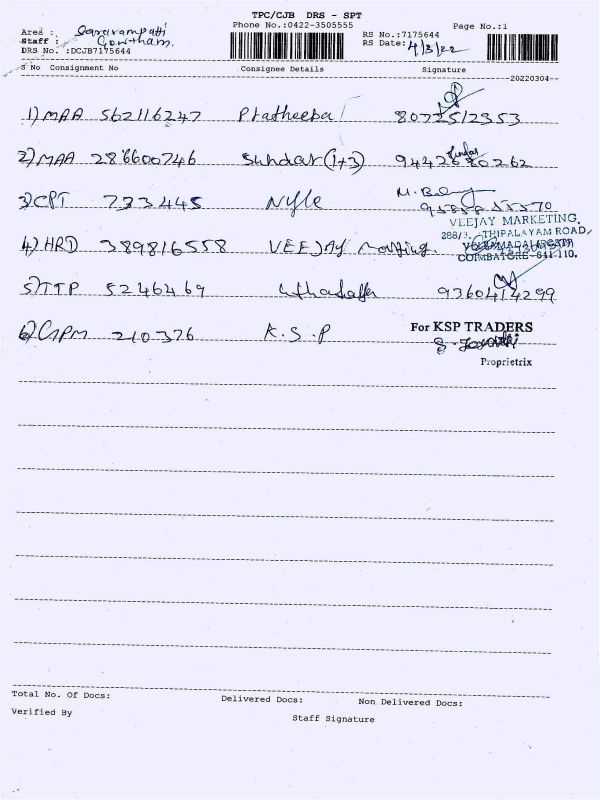 TPC/CJB DRS - SPT
Phone No.:0422-3505555
Page No.:1
Area : Saravampatti
Staff : Gowtham
DRS No. :DCJB7175644
RS No.:7175644
RS Date: 4/3/22
S No Consignment No Consignee Details Signature
20220304
1) MAA 562116247 Pratheepa 8072512353
2) MAA 286600746 Sundar (1+3) 9442880262
3) CPT 733445 Nyle M.
VEEJAY MARKETING,
288/3, THIPALAYAM ROAD,
4) HRD 389816558 VEEJAY
COIMBATORE-641 110.
5) TTP 5246469 9360414299
6) GPM 210376 K.S.P For KSP TRADERS
Proprietrix
Total No. Of Docs: Delivered Docs: Non Delivered Docs:
Verified By Staff Signature